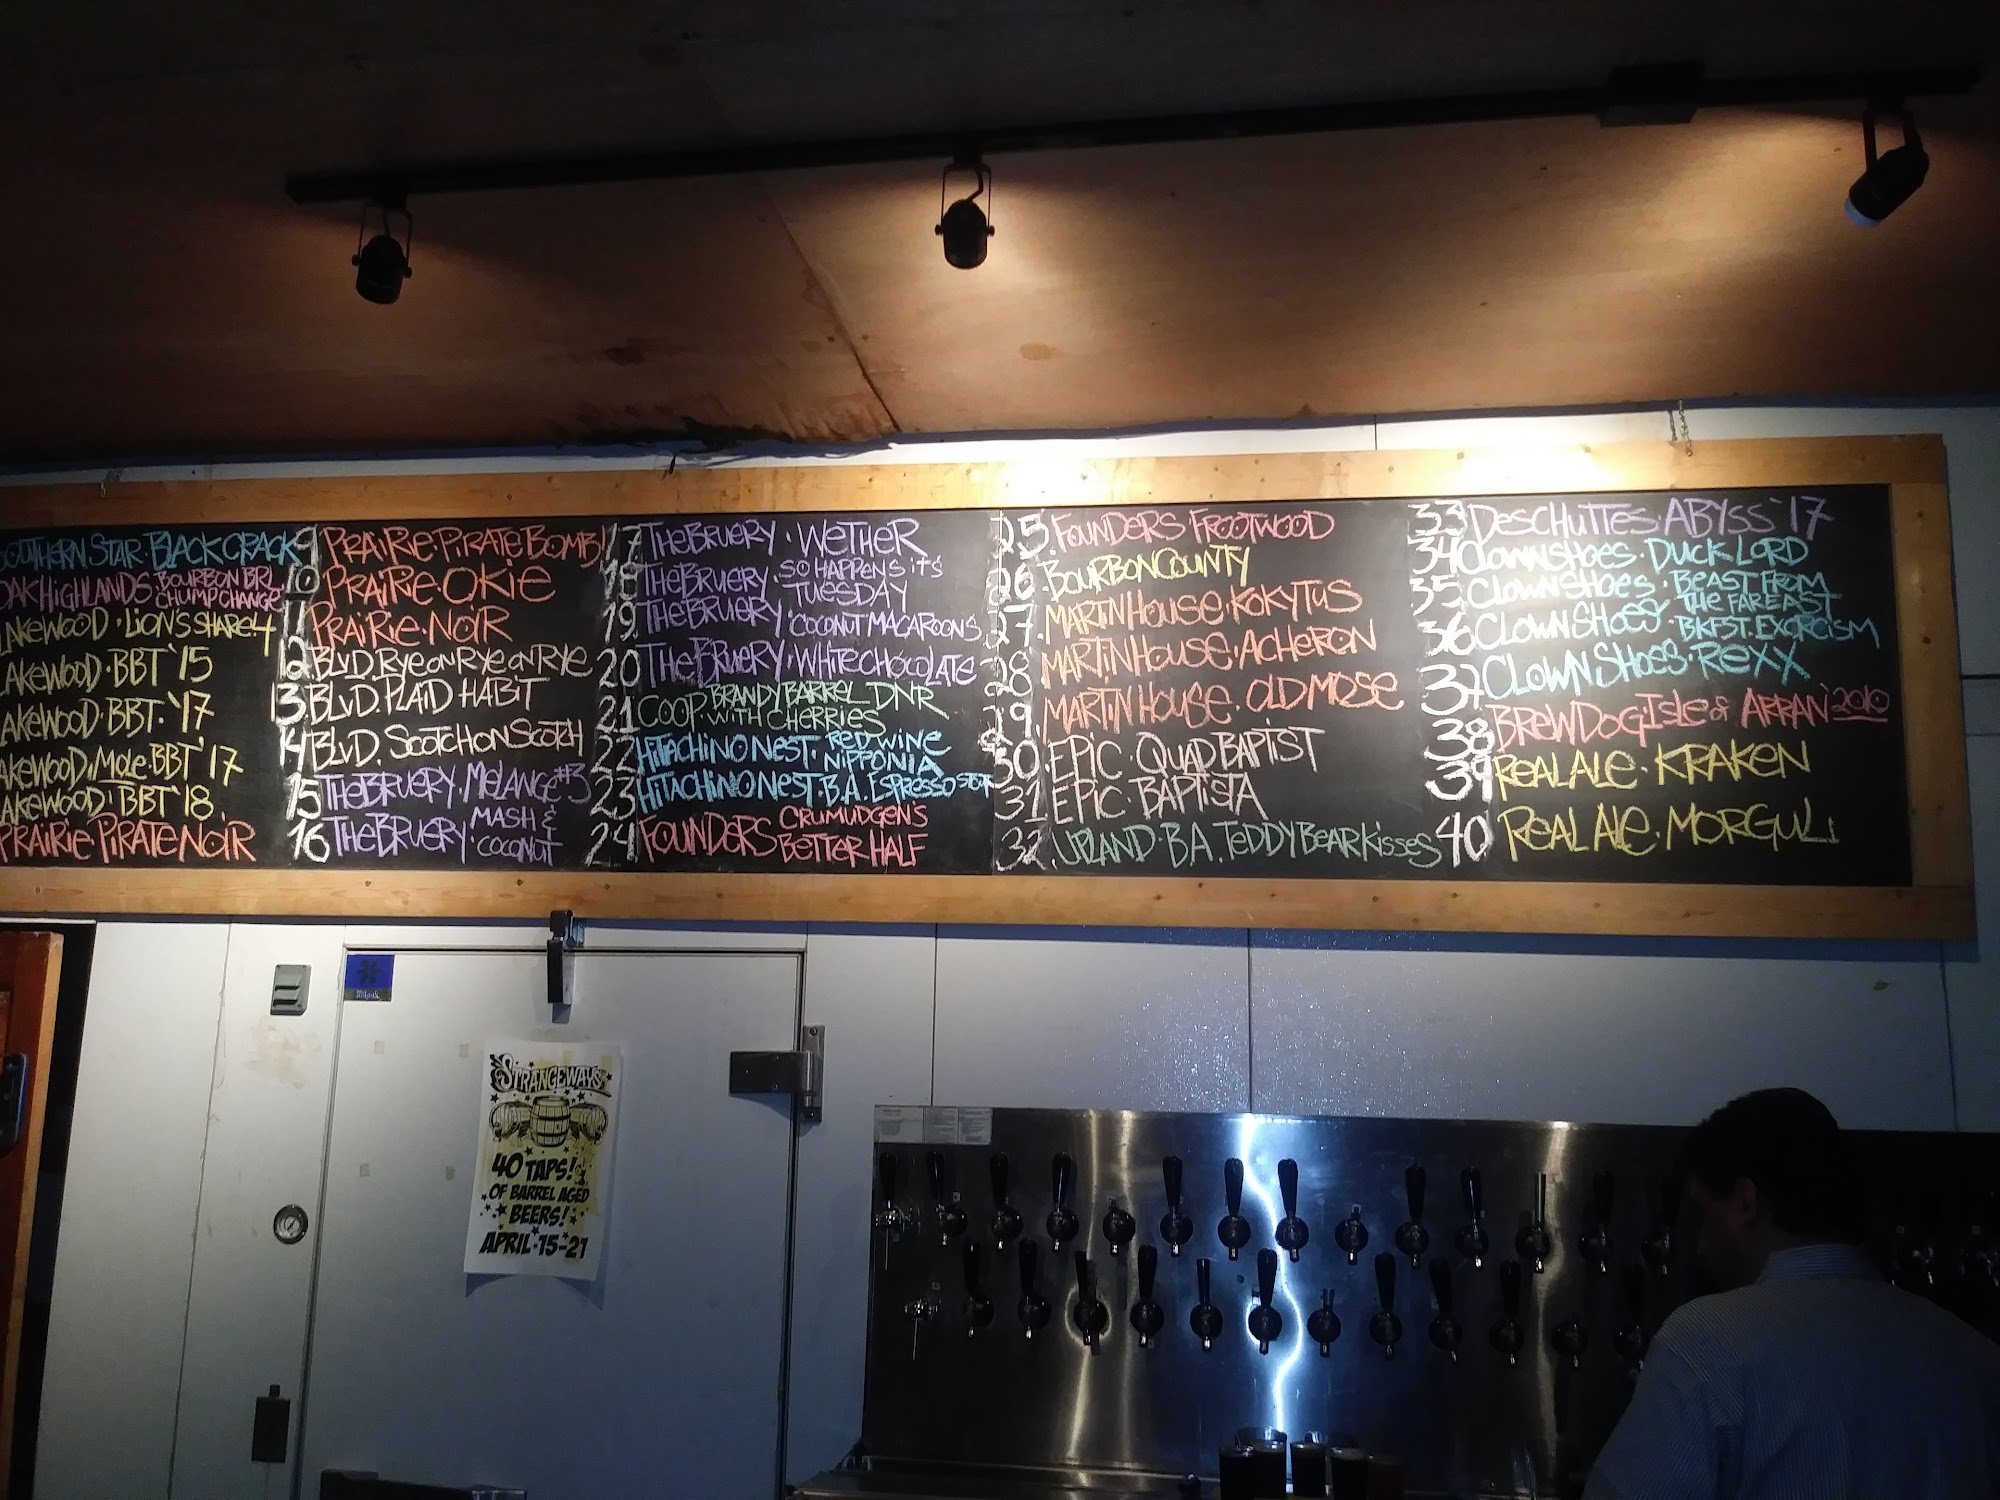 SOUTHERN STAR · BLACK CRACK
OAK HIGHLANDS · BOURBON BRL
CHUMP CHANGE
LAKEWOOD · LION'S SHARE 4
LAKEWOOD · BBT '15
LAKEWOOD · BBT. '17
LAKEWOOD. MOLE · BBT '17
LAKEWOOD · BBT '18.
PRAIRIE · PIRATE NOIR
9 PRAIRIE · PIRATE BOMB!
10 PRAIRIE · OKIE
11 PRAIRIE · NOIR
12 BLVD. RYE ON RYE ON RYE
13 BLVD. PLAID HABIT
14 BLVD. SCOTCH ON SCOTCH
15 THE BRUERY · MELANGE #3
16 THE BRUERY · MASH &
COCONUT
17 THE BRUERY · WETHER
18 THE BRUERY · SO HAPPENS IT'S
TUESDAY
19 THE BRUERY · COCONUT MACAROONS
20 THE BRUERY · WHITE CHOCOLATE
21 COOP BRANDY BARREL DNR
WITH CHERRIES
22 HITACHINO NEST · RED WINE
NIPPONIA
23 HITACHINO NEST · B.A. ESPRESSO STOUT
24 FOUNDERS CRUMUDGEN'S
BETTER HALF
25. FOUNDERS FROOTWOOD
26. BOURBON COUNTY
27. MARTIN HOUSE · KOKYTUS
28 MARTIN HOUSE · ACHERON
29. MARTIN HOUSE · OLD MOSE
30 EPIC · QUAD BAPTIST
31 EPIC · BAPTISTA
32 UPLAND · B.A. TEDDY BEAR KISSES
33 DESCHUTTES · ABYSS '17
34 CLOWN SHOES · DUCK LORD
35 CLOWN SHOES · BEAST FROM
THE FAR EAST
36 CLOWN SHOES · BKFST. EXORCISM
37 CLOWN SHOES · REXX
38 BREWDOG · ISLE of ARRAN 2010
39 REAL ALE · KRAKEN
40 REAL ALE · MORGUL
STRANGEWAYS
40 TAPS!
OF BARREL AGED
BEERS!
APRIL · 15-21